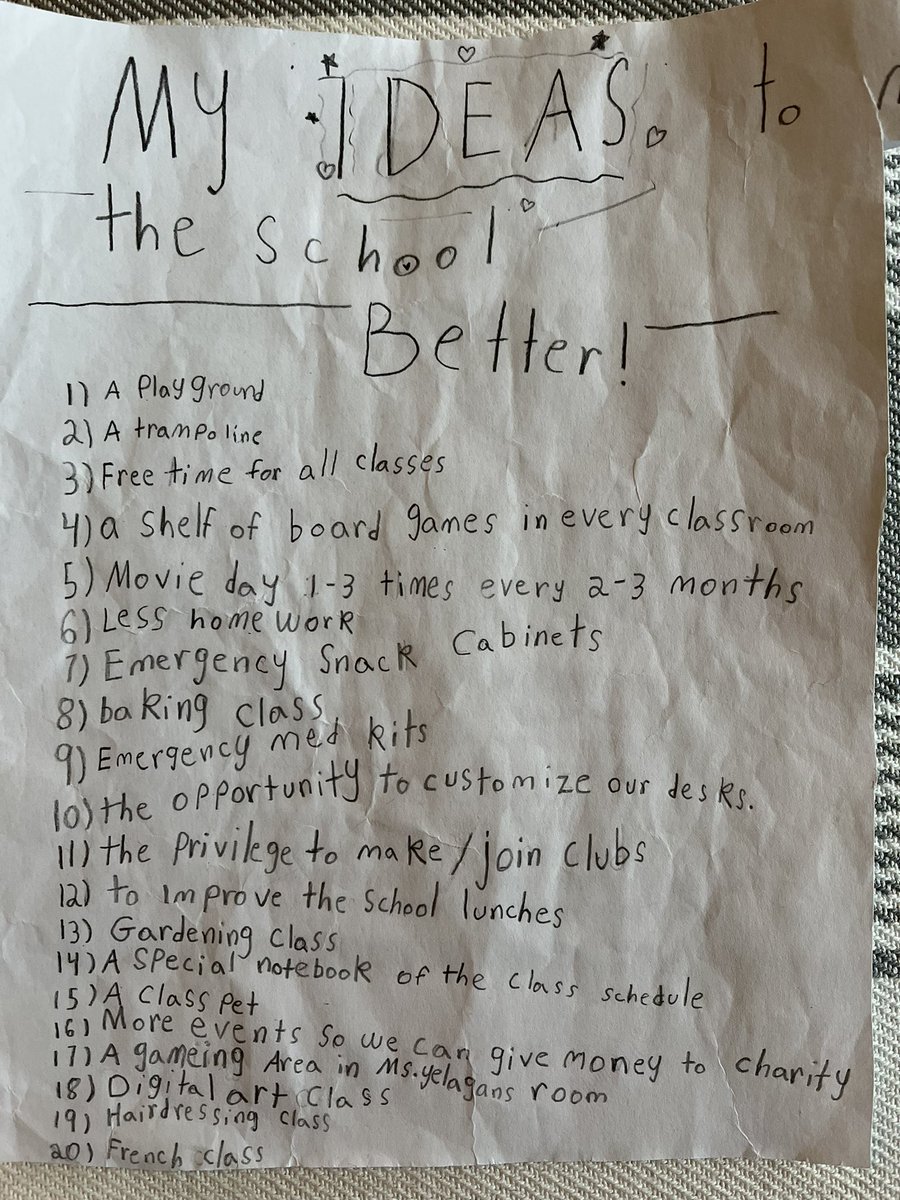 My IDEAS to
the school
Better!
1) A Playground
2) A trampoline
3) Free time for all classes
4) a shelf of board games in every classroom
5) Movie day 1-3 times every 2-3 months
6) Less homework
7) Emergency Snack Cabinets
8) baking class
9) Emergency med kits
10) the opportunity to customize our desks.
11) the Privilege to make/join clubs
12) to improve the school lunches
13) Gardening class
14) A Special notebook of the class schedule
15) A class pet
16) More events so we can give money to charity
17) A gameing Area in Ms.yelagans room
18) Digital art class
19) Hairdressing class
20) French class